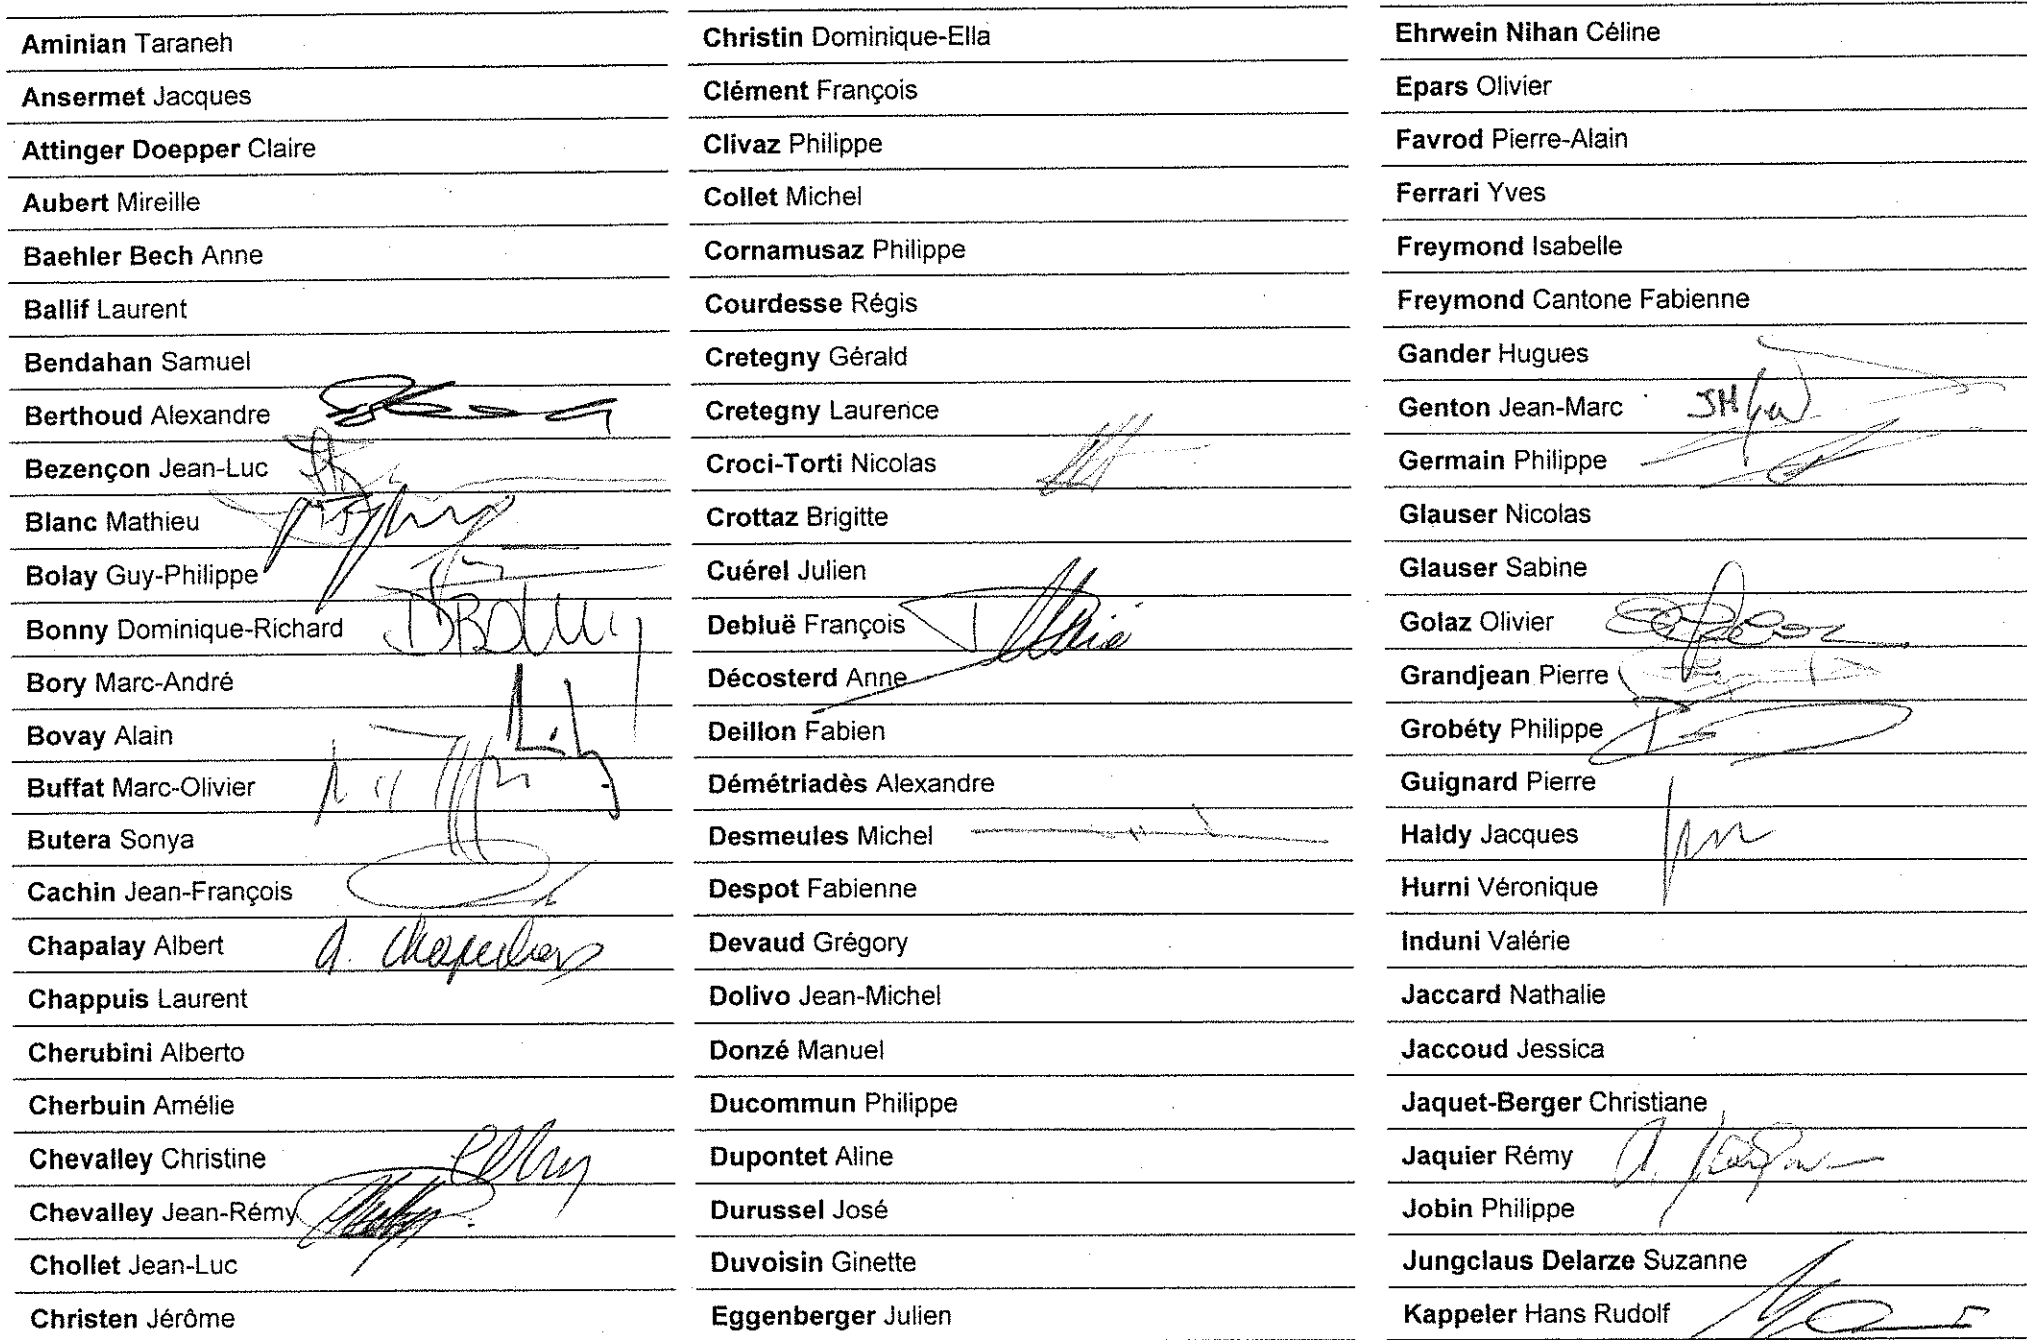 Aminian Taraneh
Ansermet Jacques
Attinger Doepper Claire
Aubert Mireille
Baehler Bech Anne
Ballif Laurent
Bendahan Samuel
Berthoud Alexandre
Bezençon Jean-Luc
Blanc Mathieu
Bolay Guy-Philippe
Bonny Dominique-Richard
Bory Marc-André
Bovay Alain
Buffat Marc-Olivier
Butera Sonya
Cachin Jean-François
Chapalay Albert
Chappuis Laurent
Cherubini Alberto
Cherbuin Amélie
Chevalley Christine
Chevalley Jean-Rémy
Chollet Jean-Luc
Christen Jérôme
Christin Dominique-Ella
Clément François
Clivaz Philippe
Collet Michel
Cornamusaz Philippe
Courdesse Régis
Cretegny Gérald
Cretegny Laurence
Croci-Torti Nicolas
Crottaz Brigitte
Cuérel Julien
Debluë François
Décosterd Anne
Deillon Fabien
Démétriadès Alexandre
Desmeules Michel
Despot Fabienne
Devaud Grégory
Dolivo Jean-Michel
Donzé Manuel
Ducommun Philippe
Dupontet Aline
Durussel José
Duvoisin Ginette
Eggenberger Julien
Ehrwein Nihan Céline
Epars Olivier
Favrod Pierre-Alain
Ferrari Yves
Freymond Isabelle
Freymond Cantone Fabienne
Gander Hugues
Genton Jean-Marc
Germain Philippe
Glauser Nicolas
Glauser Sabine
Golaz Olivier
Grandjean Pierre
Grobéty Philippe
Guignard Pierre
Haldy Jacques
Hurni Véronique
Induni Valérie
Jaccard Nathalie
Jaccoud Jessica
Jaquet-Berger Christiane
Jaquier Rémy
Jobin Philippe
Jungclaus Delarze Suzanne
Kappeler Hans Rudolf